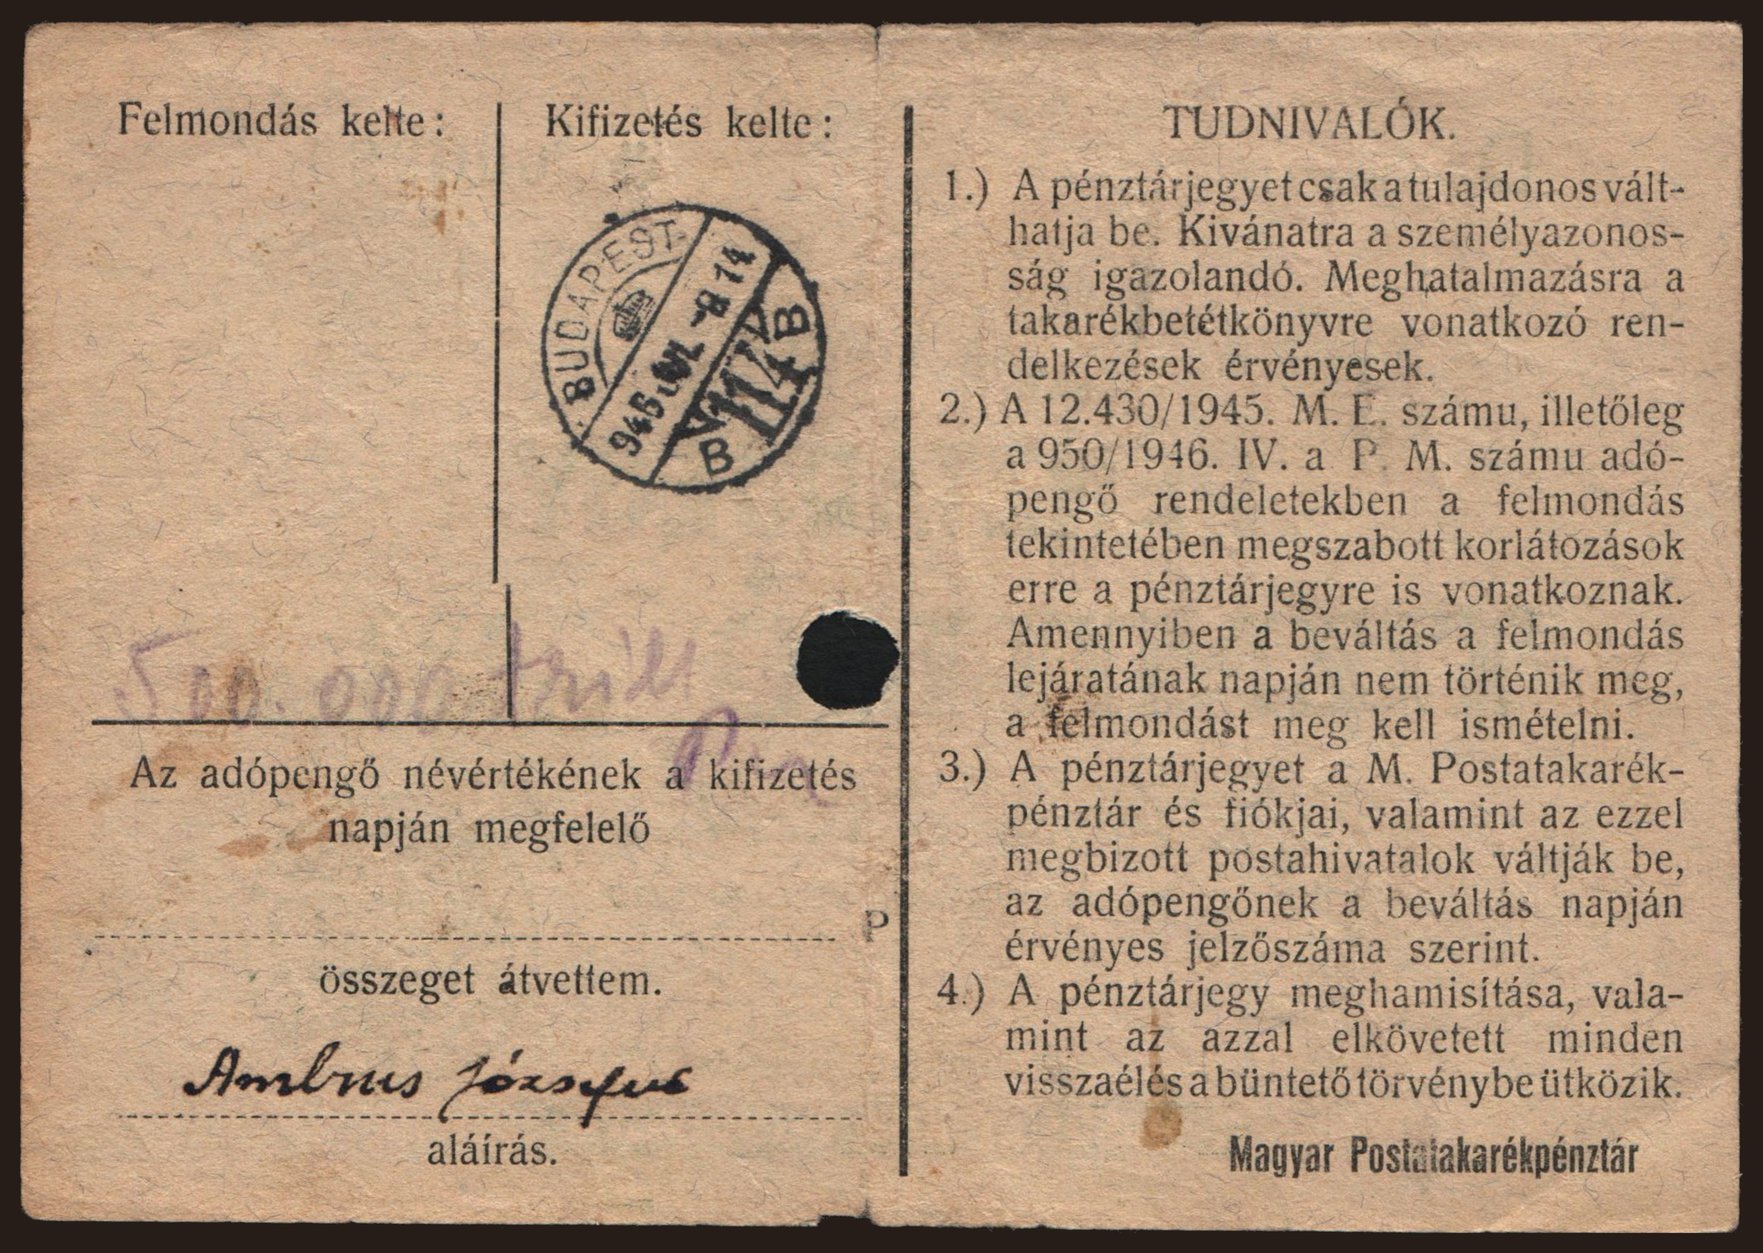 Felmondás kelte:
Kifizetés kelte:
BUDAPEST
946 VII. -8 14
114
B
B
500.000 trill
P
Az adópengő névértékének a kifizetés
napján megfelelő
P
összeget átvettem.
Ambrus Józsefné
aláírás.
TUDNIVALÓK.
1.) A pénztárjegyet csak a tulajdonos vált-
hatja be. Kivánatra a személyazonos-
ság igazolandó. Meghatalmazásra a
takarékbetétkönyvre vonatkozó ren-
delkezések érvényesek.
2.) A 12.430/1945. M. E. számu, illetőleg
a 950/1946. IV. a P. M. számu adó-
pengő rendeletekben a felmondás
tekintetében megszabott korlátozások
erre a pénztárjegyre is vonatkoznak.
Amennyiben a beváltás a felmondás
lejáratának napján nem történik meg,
a felmondást meg kell ismételni.
3.) A pénztárjegyet a M. Postatakarék-
pénztár és fiókjai, valamint az ezzel
megbizott postahivatalok váltják be,
az adópengőnek a beváltás napján
érvényes jelzőszáma szerint.
4.) A pénztárjegy meghamisítása, vala-
mint az azzal elkövetett minden
visszaélés a büntető törvénybe ütközik.
Magyar Postatakarékpénztár